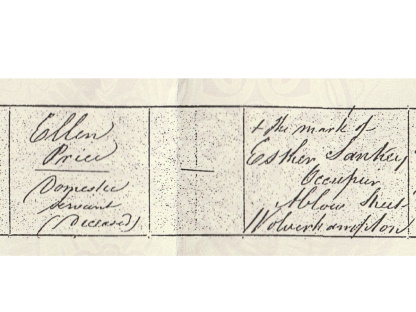 Ellen
Price
Domestic
servant
(Deceased)
—
+ The mark of
Esther Sankey
Occupier
Ablow Street
Wolverhampton